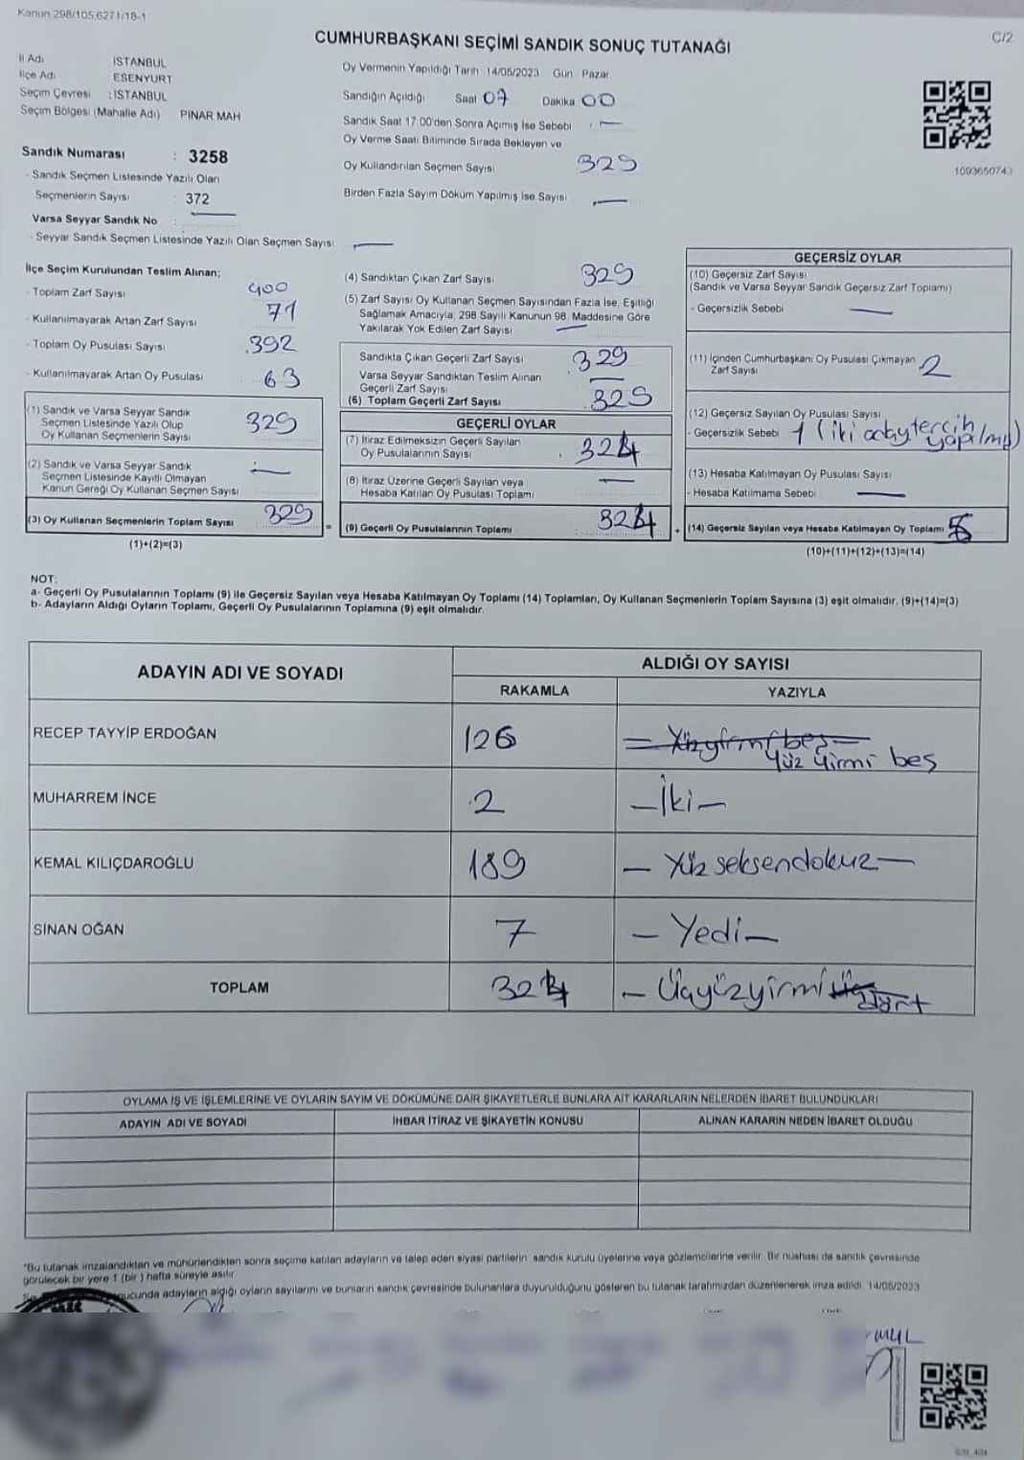 Kanun 298/105,6271/18-1
C/2
CUMHURBAŞKANI SEÇİMİ SANDIK SONUÇ TUTANAĞI
İl Adı İSTANBUL
İlçe Adı ESENYURT
Seçim Çevresi : İSTANBUL
Seçim Bölgesi (Mahalle Adı) PINAR MAH
Sandık Numarası : 3258
- Sandık Seçmen Listesinde Yazılı Olan
Seçmenlerin Sayısı 372
Varsa Seyyar Sandık No
- Seyyar Sandık Seçmen Listesinde Yazılı Olan Seçmen Sayısı
Oy Vermenin Yapıldığı Tarih 14/05/2023 Gün Pazar
Sandığın Açıldığı Saat 07 Dakika 00
Sandık Saat 17:00'den Sonra Açımış İse Sebebi
Oy Verme Saati Bitiminde Sırada Bekleyen ve
Oy Kullandırılan Seçmen Sayısı 329
Birden Fazla Sayım Döküm Yapılmış ise Sayısı
1093650743
İlçe Seçim Kurulundan Teslim Alınan;
- Toplam Zarf Sayısı 400
- Kullanılmayarak Artan Zarf Sayısı 71
- Toplam Oy Pusulası Sayısı 392
- Kullanılmayarak Artan Oy Pusulası 63
(1) Sandık ve Varsa Seyyar Sandık
Seçmen Listesinde Yazılı Olup
Oy Kullanan Seçmenlerin Sayısı 329
(2) Sandık ve Varsa Seyyar Sandık
Seçmen Listesinde Kayıtlı Olmayan
Kanun Gereği Oy Kullanan Seçmen Sayısı
(3) Oy Kullanan Seçmenlerin Toplam Sayısı 329 =
(1)+(2)=(3)
(4) Sandıktan Çıkan Zarf Sayısı 329
(5) Zarf Sayısı Oy Kullanan Seçmen Sayısından Fazla İse, Eşitliği
Sağlamak Amacıyla, 298 Sayılı Kanunun 98. Maddesine Göre
Yakılarak Yok Edilen Zarf Sayısı
Sandıkta Çıkan Geçerli Zarf Sayısı 329
Varsa Seyyar Sandıktan Teslim Alınan
Geçerli Zarf Sayısı
(6) Toplam Geçerli Zarf Sayısı 329
GEÇERLİ OYLAR
(7) İtiraz Edilmeksizin Geçerli Sayılan
Oy Pusulalarının Sayısı 324
(8) İtiraz Üzerine Geçerli Sayılan veya
Hesaba Katılan Oy Pusulası Toplamı
(9) Geçerli Oy Pusulalarının Toplamı 324 +
GEÇERSİZ OYLAR
(10) Geçersiz Zarf Sayısı
(Sandık ve Varsa Seyyar Sandık Geçersiz Zarf Toplamı)
- Geçersizlik Sebebi
(11) İçinden Cumhurbaşkanı Oy Pusulası Çıkmayan
Zarf Sayısı 2
(12) Geçersiz Sayılan Oy Pusulası Sayısı
- Geçersizlik Sebebi 1 (iki aday tercih
yapılmış)
(13) Hesaba Katılmayan Oy Pusulası Sayısı
- Hesaba Katılmama Sebebi
(14) Geçersiz Sayılan veya Hesaba Katılmayan Oy Toplamı 5
(10)+(11)+(12)+(13)=(14)
NOT:
a- Geçerli Oy Pusulalarının Toplamı (9) ile Geçersiz Sayılan veya Hesaba Katılmayan Oy Toplamı (14) Toplamları, Oy Kullanan Seçmenlerin Toplam Sayısına (3) eşit olmalıdır. (9)+(14)=(3)
b- Adayların Aldığı Oyların Toplamı, Geçerli Oy Pusulalarının Toplamına (9) eşit olmalıdır.
ADAYIN ADI VE SOYADI ALDIĞI OY SAYISI
RAKAMLA YAZIYLA
RECEP TAYYİP ERDOĞAN 126 = Yüzyirmi beş
Yüz Yirmi beş
MUHARREM İNCE 2 - İki -
KEMAL KILIÇDAROĞLU 189 - Yüz seksendokuz -
SİNAN OĞAN 7 - Yedi -
TOPLAM 324 - Üçyüzyirmi dört
OYLAMA İŞ VE İŞLEMLERİNE VE OYLARIN SAYIM VE DÖKÜMÜNE DAİR ŞİKAYETLERLE BUNLARA AİT KARARLARIN NELERDEN İBARET BULUNDUKLARI
ADAYIN ADI VE SOYADI İHBAR İTİRAZ VE ŞİKAYETİN KONUSU ALINAN KARARIN NEDEN İBARET OLDUĞU
"Bu tutanak imzalandıktan ve mühürlendikten sonra seçime katılan adayların ve talep eden siyasi partilerin sandık kurulu üyelerine veya gözlemcilerine verilir. Bir nüshası da sandık çevresinde
görülecek bir yere 1 (bir) hafta süreyle asılır.
ucunda adayların aldığı oyların sayılarını ve bunların sandık çevresinde bulunanlara duyurulduğunu gösteren bu tutanak tarafımızdan düzenlenerek imza edildi. 14/05/2023